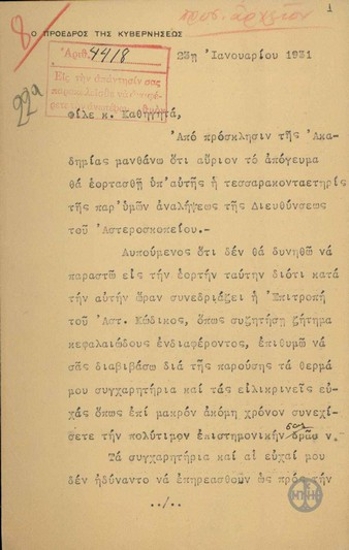 1
προσ. ἀρχεῖον
8
Ο ΠΡΟΕΔΡΟΣ ΤΗΣ ΚΥΒΕΡΝΗΣΕΩΣ
Ἀριθ. 4418
23η Ἰανουαρίου 1931
Εἰς τὴν ἀπάντησίν σας
22α
Φίλε κ. Καθηγητά,
Ἀπό πρόσκλησιν τῆς Ἀκα-
δημίας μανθάνω ὅτι αὔριον τό ἀπόγευμα
θά ἑορτασθῇ ὑπ'αὐτῆς ἡ τεσσαρακονταετηρίς
τῆς παρ'ὑμῶν ἀναλήψεως τῆς Διευθύνσεως
τοῦ Ἀστεροσκοπείου.
Λυπούμενος ὅτι δέν θά δυνηθῶ νά
παραστῶ εἰς τήν ἑορτήν ταύτην διότι κατά
τήν αὐτήν ὥραν συνεδριάζει ἡ Ἐπιτροπή
τοῦ Ἀστ. Κώδικος, ὅπως συζητήσῃ ζήτημα
κεφαλαιώδους ἐνδιαφέροντος, ἐπιθυμῶ νά
σᾶς διαβιβάσω διά τῆς παρούσης τά θερμά
μου συγχαρητήρια καί τάς εἰλικρινεῖς εὐ-
χάς ὅπως ἐπί μακρόν ἀκόμη χρόνον συνεχί-
σετε τήν πολύτιμον ἐπιστημονικήν σας δρᾶσιν.
Τά συγχαρητήρια καί αἱ εὐχαί μου
δέν ἠδύναντο νά ἐπηρεασθοῦν ὡς πρός τήν
./.